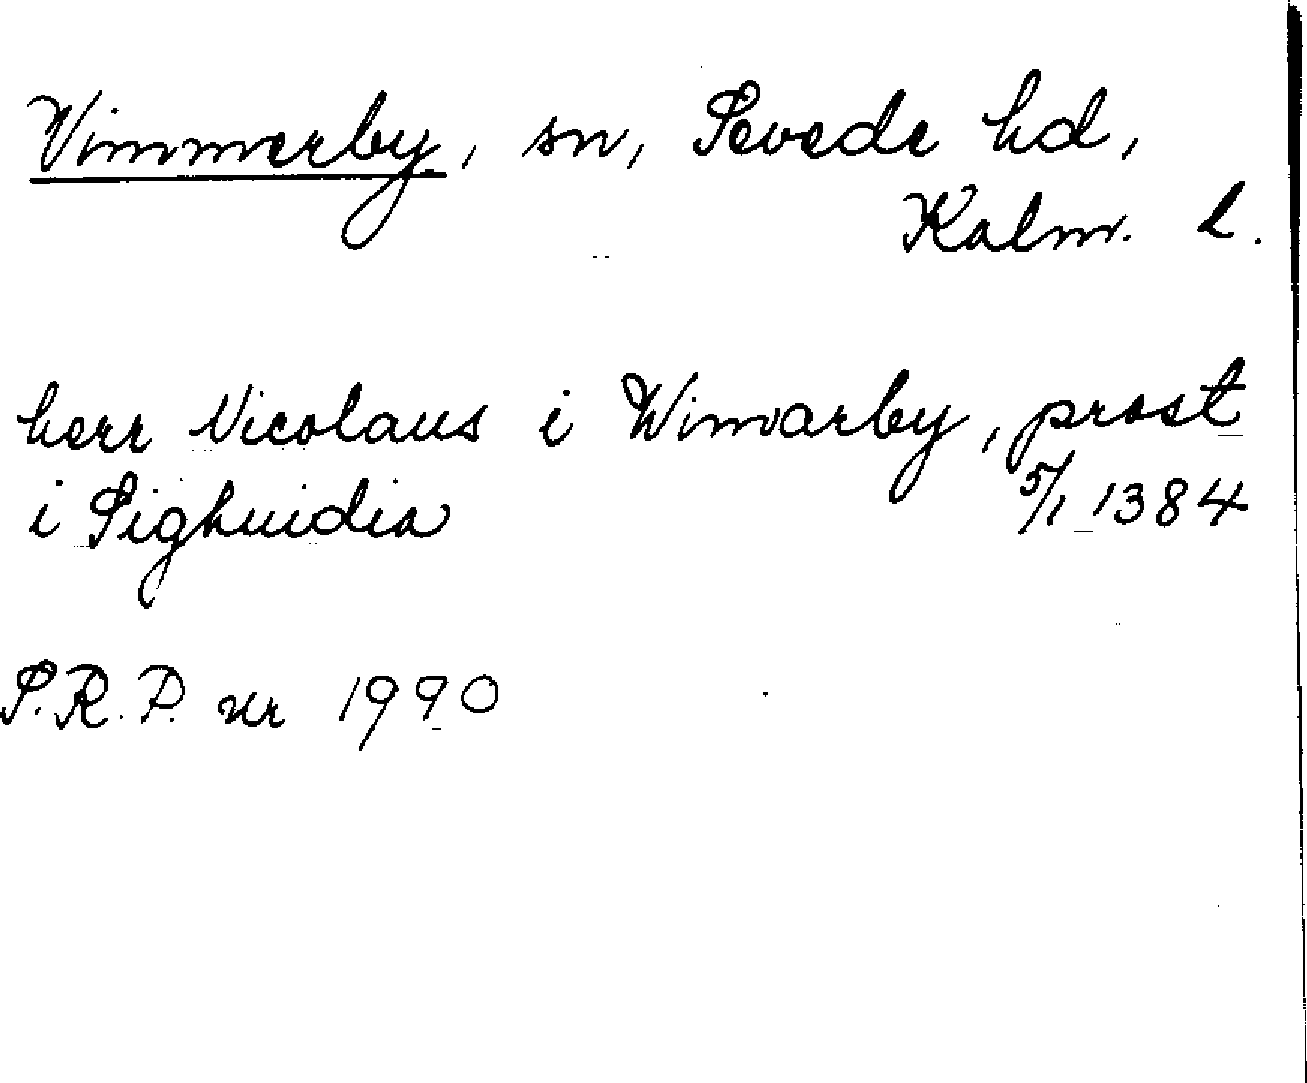 Vimmerby, sn, Sevede hd,
Kalm. l.
herr Nicolaus i Wimarby, prost
i Sighuidia 5/1 1384
S.R.P. nr 1990